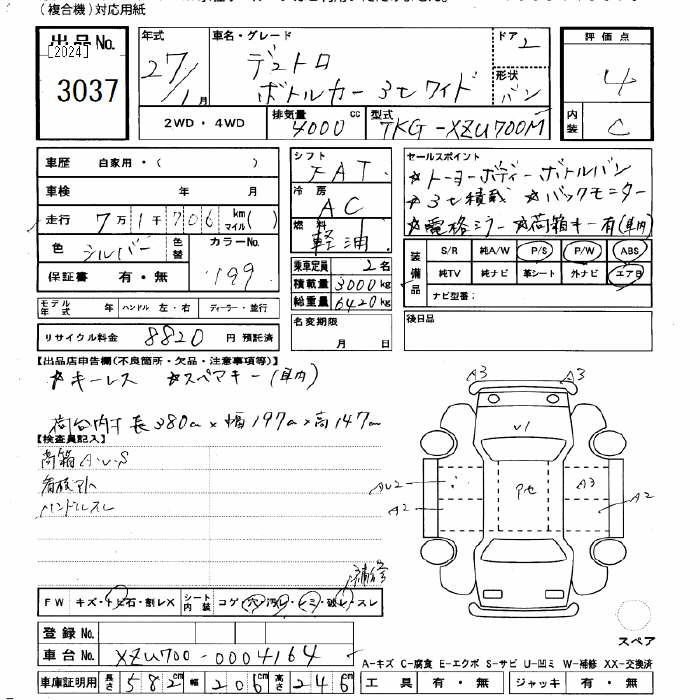 (複合機)対応用紙
出品No.
[2024]
3037
年式
27/1月
車名・グレード
デュトロ
ボトルカー 3tワイド
ドア
2
形状
バン
評価点
4
内装
C
2WD・4WD
排気量
4000cc
型式
TKG-XZU700M
車歴 自家用・( )
車検 年 月
走行 7万1千706 km マイル( )
色 シルバー 色替 カラーNo. 199
保証書 有・無
シフト
FAT
冷房
AC
燃料
軽油
乗車定員 2名
積載量 3000kg
総重量 6420kg
セールスポイント
☆トーヨーボディーボトルバン
☆3t積載 ☆バックモニター
☆電格ミラー ☆荷箱キー有(車内)
装備品
S/R 純A/W P/S P/W ABS
純TV 純ナビ 革シート 外ナビ エアB
ナビ型番:
モデル年式 年 ハンドル 左・右 ディーラー・並行
リサイクル料金 8820 円 預託済
名変期限
月 日
後日品
【出品店申告欄(不良箇所・欠品・注意事項等)】
☆キーレス ☆スペアキー(車内)
荷台内寸 長380cm×幅197cm×高147cm
【検査員記入】
荷箱A.U.S
ハンドルスレ
補修
FW キズ・トビ石・割レX シート内装 コゲ・穴・汚レ・シミ・破レ・スレ
登録No.
車台No. XZU700-0004164
車庫証明用 長さ 582cm 幅 206cm 高さ 246cm
A3 A3
V1
AU2 Pセ A3
A2 A2
スペア
A-キズ C-腐食 E-エクボ S-サビ U-凹ミ W-補修 XX-交換済
工具 有・無 ジャッキ 有・無